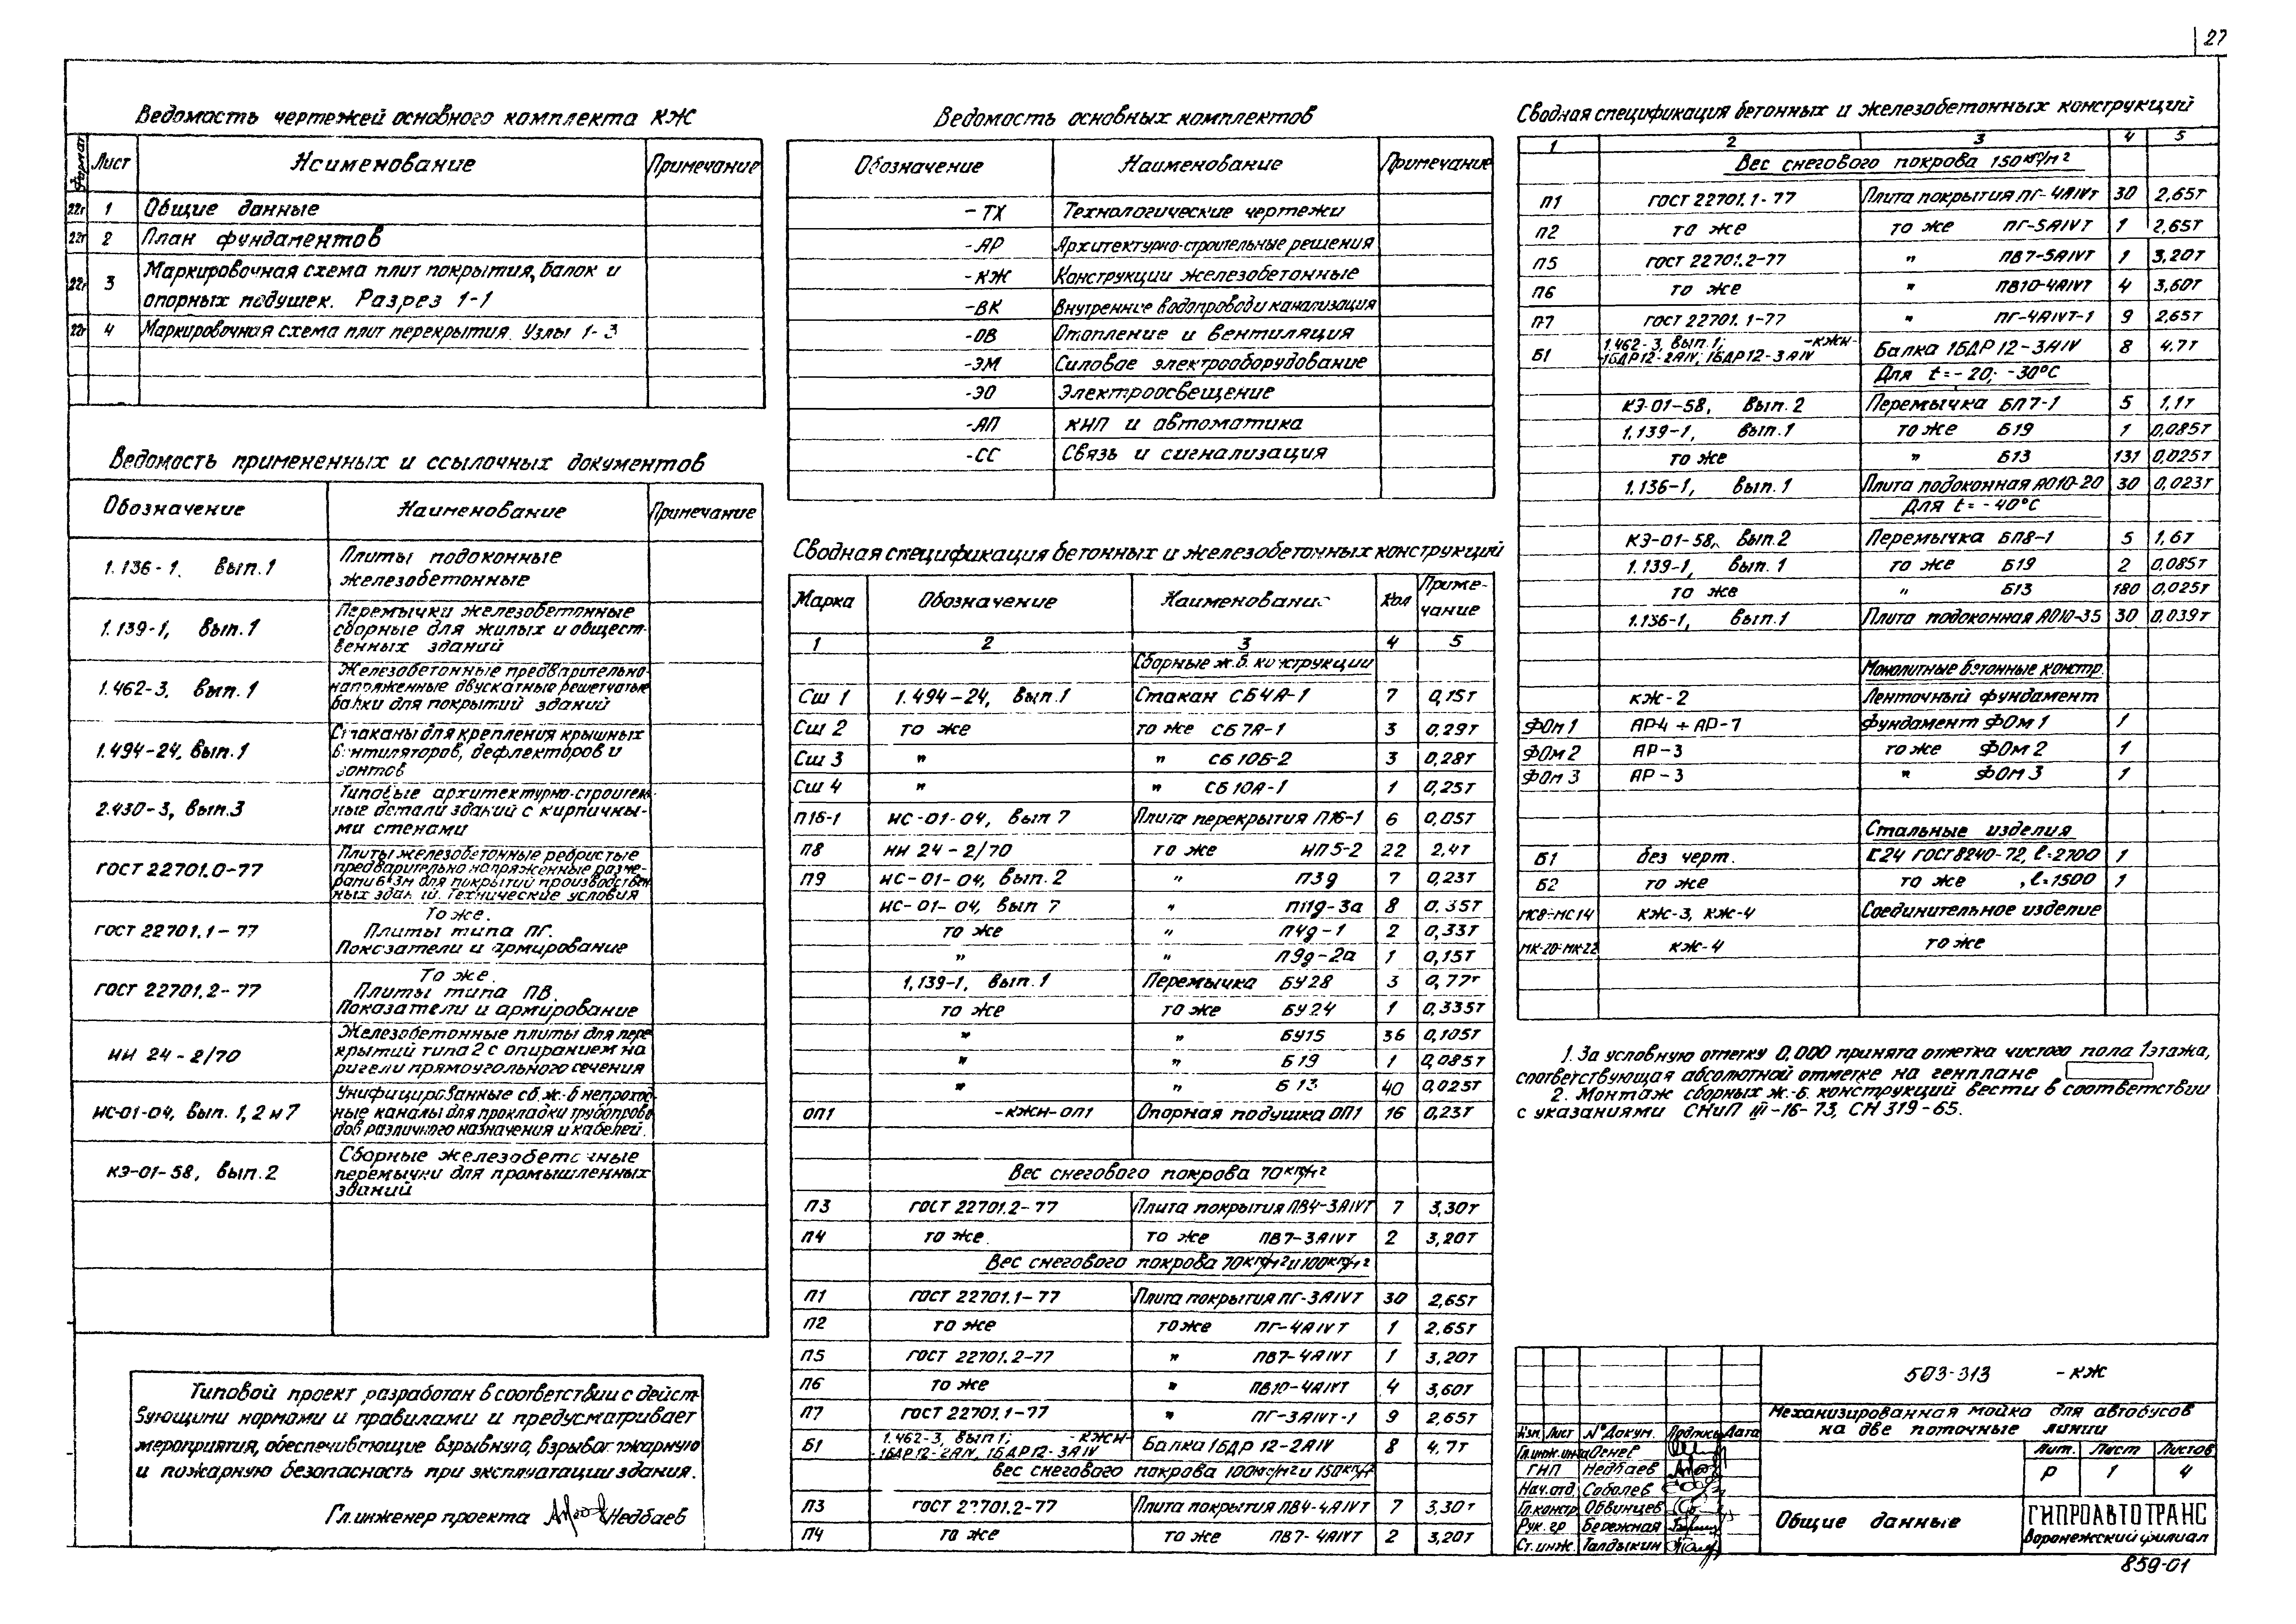 27
Ведомость чертежей основного комплекта КЖ
Формат Лист Наименование Примечание
22г 1 Общие данные
22г 2 План фундаментов
22г 3 Маркировочная схема плит покрытия, балок и
опорных подушек. Разрез 1-1
22г 4 Маркировочная схема плит перекрытия. Узлы 1-3
Ведомость примененных и ссылочных документов
Обозначение Наименование Примечание
1.136-1, Вып.1 Плиты подоконные
железобетонные
1.139-1, Вып.1 Перемычки железобетонные
сборные для жилых и общест-
венных зданий
1.462-3, вып.1 Железобетонные предварительно-
напряженные двускатные решетчатые
балки для покрытий зданий
1.494-24, вып.1 Стаканы для крепления крышных
вентиляторов, дефлекторов и
зонтов
2.430-3, вып.3 Типовые архитектурно-строитель-
ные детали зданий с кирпичны-
ми стенами
ГОСТ 22701.0-77 Плиты железобетонные ребристые
предварительно напряженные разме-
рами 6×3м для покрытий производствен-
ных зданий. Технические условия
ГОСТ 22701.1-77 То же.
Плиты типа ПГ.
Показатели и армирование
ГОСТ 22701.2-77 То же.
Плиты типа ПВ.
Показатели и армирование
ИИ 24-2/70 Железобетонные плиты для пере-
крытий типа 2 с опиранием на
ригели прямоугольного сечения
ИС-01-04, Вып. 1, 2 и 7 Унифицированные сб. ж.-б непроход-
ные каналы для прокладки трубопрово-
дов различного назначения и кабелей.
КЭ-01-58, Вып.2 Сборные железобетонные
перемычки для промышленных
зданий
Типовой проект разработан в соответствии с дейст-
вующими нормами и правилами и предусматривает
мероприятия, обеспечивающие взрывную, взрывопожарную
и пожарную безопасность при эксплуатации здания.
Гл.инженер проекта Недбаев
Ведомость основных комплектов
Обозначение Наименование Примечание
-ТХ Технологические чертежи
-АР Архитектурно-строительные решения
-КЖ Конструкции железобетонные
-ВК Внутренние водопровод и канализация
-ОВ Отопление и вентиляция
-ЭМ Силовое электрооборудование
-ЭО Электроосвещение
-АП КИП и автоматика
-СС Связь и сигнализация
Сводная спецификация бетонных и железобетонных конструкций
Марка Обозначение Наименование Кол Приме-
чание
1 2 3 4 5
Сборные ж.б. конструкции
Сш 1 1.494-24, вып.1 Стакан СБ4А-1 7 0,15т
Сш 2 то же то же СБ 7А-1 3 0,29т
Сш 3 " " СБ 10Б-2 3 0,28т
Сш 4 " " СБ 10А-1 1 0,25т
П16-1 ИС-01-04, вып 7 Плита перекрытия П16-1 6 0,05т
П8 ИИ 24-2/70 то же ИП5-2 22 2,4т
П9 ИС-01-04, вып.2 " П3д 7 0,23т
ИС-01-04, вып 7 " П11д-3а 8 0.35т
то же " П4д-1 2 0,33т
" " П9д-2а 1 0,15т
1.139-1, Вып.1 Перемычка БУ28 3 0,77т
то же то же БУ24 1 0,335т
" " БУ15 36 0,105т
" " Б19 1 0,085т
" " Б13 40 0,025т
ОП1 -КЖИ-ОП1 Опорная подушка ОП1 16 0,23т
Вес снегового покрова 70кг/м²
П3 ГОСТ 22701.2-77 Плита покрытия ПВ4-3АIVТ 7 3,30т
П4 то же. то же ПВ7-3АIVТ 2 3,20т
Вес снегового покрова 70кг/м² и 100кг/м²
П1 ГОСТ 22701.1-77 Плита покрытия ПГ-3АIVТ 30 2,65т
П2 то же то же ПГ-4АIVТ 1 2.65т
П5 ГОСТ 22701.2-77 " ПВ7-4АIVТ 1 3,20т
П6 то же " ПВ10-4АIVТ 4 3,60т
П7 ГОСТ 22701.1-77 " ПГ-3АIVТ-1 9 2,65т
Б1 1.462-3, вып 1; -КЖИ-
-1БДР12-2АIV, 1БДР12-3АIV Балка 1БДР 12-2АIV 8 4.7т
вес снегового покрова 100кг/м² и 150кг/м²
П3 ГОСТ 22701.2-77 Плита покрытия ПВ4-4АIVТ 7 3,30т
П4 то же то же ПВ7-4АIVТ 2 3,20т
Сводная спецификация бетонных и железобетонных конструкций
1 2 3 4 5
Вес снегового покрова 150кг/м²
П1 ГОСТ 22701.1-77 Плита покрытия ПГ-4АIVТ 30 2,65т
П2 то же то же ПГ-5АIVТ 1 2,65т
П5 ГОСТ 22701.2-77 " ПВ7-5АIVТ 1 3,20т
П6 то же " ПВ10-4АIVТ 4 3,60т
П7 ГОСТ 22701.1-77 " ПГ-4АIVТ-1 9 2,65т
Б1 1.462-3, вып.1; -КЖИ-
-1БДР12-2АIV; 1БДР12-3АIV Балка 1БДР12-3АIV 8 4.7т
Для t=-20; -30°С
КЭ-01-58, Вып.2 Перемычка БП7-1 5 1,1т
1.139-1, вып.1 то же Б19 1 0,085т
то же " Б13 131 0,025т
1.136-1, вып.1 Плита подоконная АО10-20 30 0,023т
Для t=-40°С
КЭ-01-58, Вып.2 Перемычка БП8-1 5 1,6т
1.139-1, вып.1 то же Б19 2 0,085т
то же " Б13 180 0,025т
1.136-1, вып.1 Плита подоконная АО10-35 30 0.039т
Монолитные бетонные констр.
КЖ-2 Ленточный фундамент
ФОм 1 АР4 + АР-7 Фундамент ФОм 1 1
ФОм 2 АР-3 то же ФОм 2 1
ФОм 3 АР-3 " ФОм 3 1
Стальные изделия
Б1 без черт. С24 ГОСТ 8240-72, ℓ=2700 1
Б2 то же то же , ℓ=1500 1
МС8÷МС14 КЖ-3, КЖ-4 Соединительное изделие
МК-20÷МК-22 КЖ-4 то же
1. За условную отметку 0,000 принята отметка чистого пола 1этажа,
соответствующая абсолютной отметке на генплане
2. Монтаж сборных ж.-б. конструкций вести в соответствии
с указаниями СНиП III-16-73, СН 319-65.
503-313 -КЖ
Механизированная мойка для автобусов
на две поточные линии
Изм. Лист №Докум. Подпись Дата
Гл.инж.ин-та
ГИП Недбаев
Нач.отд Соболев
Гл.констр Обвинцев
Рук.гр Бережная
Ст.инж. Талдыкин
Лит. Лист Листов
Р 1 4
Общие данные
ГИПРОАВТОТРАНС
Воронежский филиал
859-01